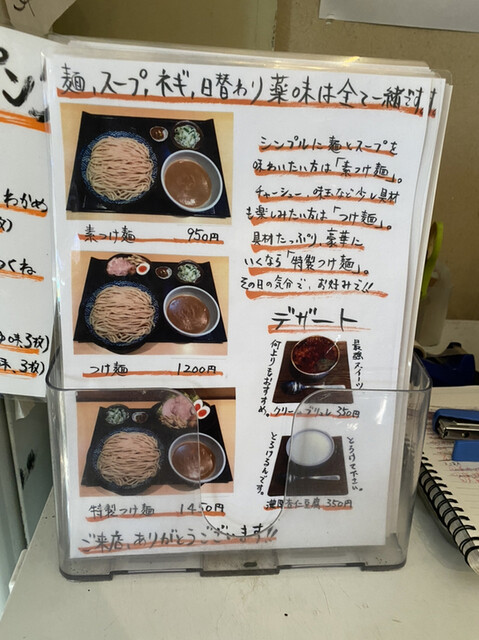 麺、スープ、ネギ、日替わり薬味は全て一緒です。
シンプルに麺とスープを
味わいたい方は「素つけ麺」。
チャーシュー、味玉など少し具材
も楽しみたい方は「つけ麺」。
具材たっぷり、豪華に
いくなら「特製つけ麺」。
その日の気分で、お好みで!!
素つけ麺 950円
つけ麺 1200円
特製つけ麺 1450円
デザート
最強スイーツ
何よりもおすすめ。
クリームブリュレ 350円
とろけて下さい。
とろけるんです。
杏仁豆腐 350円
ご来店、ありがとうございます!!
わかめ
つくね
味3枚)
3枚)